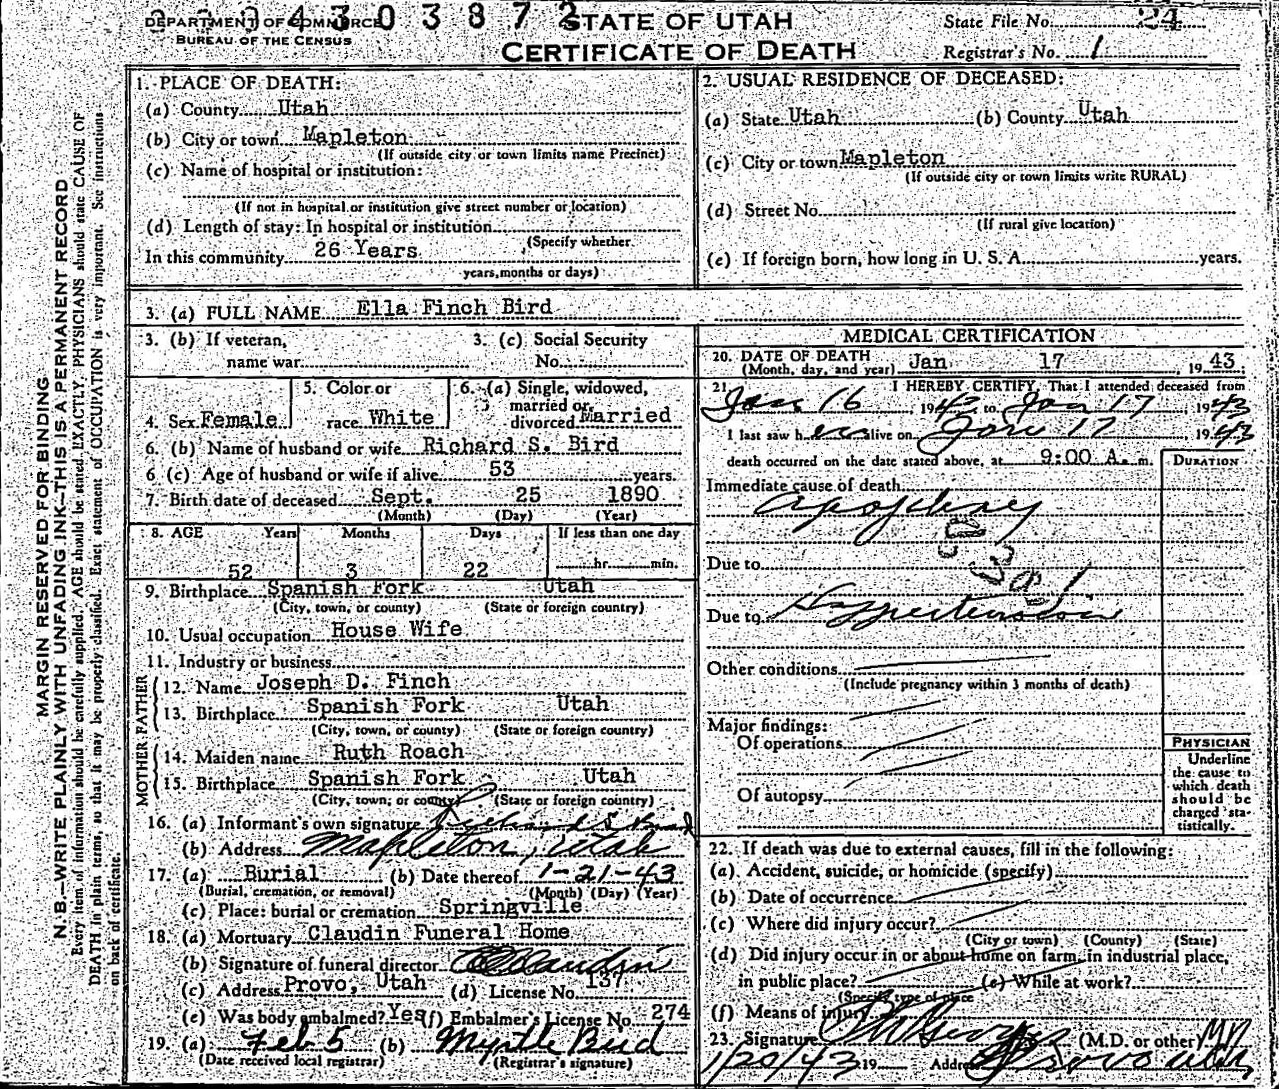 DEPARTMENT OF COMMERCE
BUREAU OF THE CENSUS
STATE OF UTAH
CERTIFICATE OF DEATH
State File No. 24
Registrar's No. 1
MARGIN RESERVED FOR BINDING
N. B.—WRITE PLAINLY WITH UNFADING INK—THIS IS A PERMANENT RECORD
Every item of information should be carefully supplied. AGE should be stated EXACTLY. PHYSICIANS should state CAUSE OF
DEATH in plain terms, so that it may be properly classified. Exact statement of OCCUPATION is very important. See instructions
on back of certificate.
1. PLACE OF DEATH:
(a) County Utah
(b) City or town Mapleton
(If outside city or town limits name Precinct)
(c) Name of hospital or institution:
(If not in hospital or institution give street number or location)
(d) Length of stay: In hospital or institution
(Specify whether
In this community 26 Years
years, months or days)
2. USUAL RESIDENCE OF DECEASED:
(a) State Utah (b) County Utah
(c) City or town Mapleton
(If outside city or town limits write RURAL)
(d) Street No.
(If rural give location)
(e) If foreign born, how long in U. S. A. years.
3. (a) FULL NAME Ella Finch Bird
3. (b) If veteran,
name war
3. (c) Social Security
No.
4. Sex Female
5. Color or
race White
6. (a) Single, widowed,
married or
divorced Married
6. (b) Name of husband or wife Richard S. Bird
6 (c) Age of husband or wife if alive 53 years.
7. Birth date of deceased Sept. 25 1890
(Month) (Day) (Year)
8. AGE Years Months Days If less than one day
52 3 22 hr. min.
9. Birthplace Spanish Fork Utah
(City, town, or county) (State or foreign country)
10. Usual occupation House Wife
11. Industry or business
FATHER
12. Name Joseph D. Finch
13. Birthplace Spanish Fork Utah
(City, town, or county) (State or foreign country)
MOTHER
14. Maiden name Ruth Roach
15. Birthplace Spanish Fork Utah
(City, town, or county) (State or foreign country)
16. (a) Informant's own signature Richard S Bird
(b) Address Mapleton, Utah
17. (a) Burial (b) Date thereof 1-21-43
(Burial, cremation, or removal) (Month) (Day) (Year)
(c) Place: burial or cremation Springville
18. (a) Mortuary Claudin Funeral Home
(b) Signature of funeral director Claudin
(c) Address Provo, Utah (d) License No. 137
(e) Was body embalmed? Yes (f) Embalmer's License No. 274
19. (a) Feb 5 (b) Myrtle Bird
(Date received local registrar) (Registrar's signature)
MEDICAL CERTIFICATION
20. DATE OF DEATH
(Month, day, and year) Jan 17, 1943
21. I HEREBY CERTIFY, That I attended deceased from
Jan 16, 1943 to Jan 17 1943
I last saw her alive on Jan 17, 1943
death occurred on the date stated above, at 9:00 A. m.
DURATION
Immediate cause of death
apoplexy
Due to
Due to Hypertension
Other conditions
(Include pregnancy within 3 months of death)
Major findings:
Of operations
Of autopsy
PHYSICIAN
Underline
the cause to
which death
should be
charged sta-
tistically.
22. If death was due to external causes, fill in the following:
(a) Accident, suicide, or homicide (specify)
(b) Date of occurrence
(c) Where did injury occur?
(City or town) (County) (State)
(d) Did injury occur in or about home on farm, in industrial place,
in public place? (e) While at work?
(Specify type of place
(f) Means of injury
23. Signature (M.D. or other) MD
1/20/43 19 Address Provo Utah